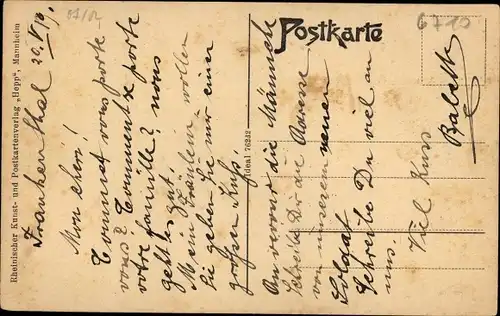 67/12
Postkarte
6710
Rheinischer Kunst- und Postkartenverlag „Hepp", Mannheim
Ideal 76242
Frankenthal 20. V. 19.
Mon cheri!
Comment vous porte
vous? Comment se porte
votre famille? nous
geht es gut.
Mein Fräulein wollen
Sie geben Sie mir einen
großsen Kuss.
An die Männete
Schreibe Dir die Adresse
von unserem neuen
Soldat
Schreibe Du viel an
uns.
Viel Kuss
Babette